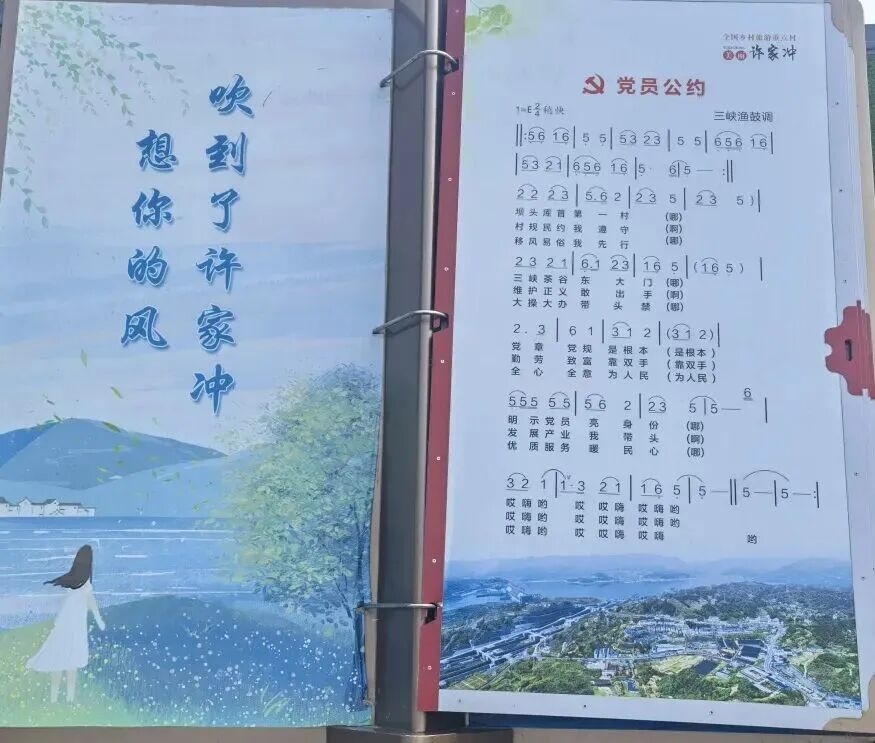 想你的风
吹到了许家冲
全国乡村旅游重点村
美丽 许家冲
党员公约
1=E 2/4 稍快
三峡渔鼓调
‖:56 16 | 5 5 | 53 23 | 5 5 | 656 16 |
| 53 21 | 656 16 | 5· 6 | 5 — :‖
22 23 | 5.6 2 | 23 5 | 23 5 ) |
坝头库首 第 一 村 (哪)
村规民约 我 遵 守 (啊)
移风易俗 我 先 行 (哪)
23 21 | 61 23 | 16 5 | (16 5) |
三峡茶谷 东 大 门 (哪)
维护正义 敢 出 手 (啊)
大操大办 带 头 禁 (哪)
2. 3 | 6 1 | 31 2 | (31 2) |
党 章 党 规 是根本 (是根本)
勤 劳 致 富 靠双手 (靠双手)
全 心 全 意 为人民 (为人民)
555 55 | 56 2 | 23 5 | 5 — 6 |
明示党员 亮 身 份 (哪)
发展产业 我 带 头 (啊)
优质服务 暖 民 心 (哪)
32 1 | 1·3 21 | 16 5 | 5 — ‖ 5 — | 5 — :|
哎嗨哟 哎 嗨 哎 嗨 哟
哎嗨哟 哎 嗨 哎 嗨 哟
哎嗨哟 哎 嗨 哎 嗨 哟